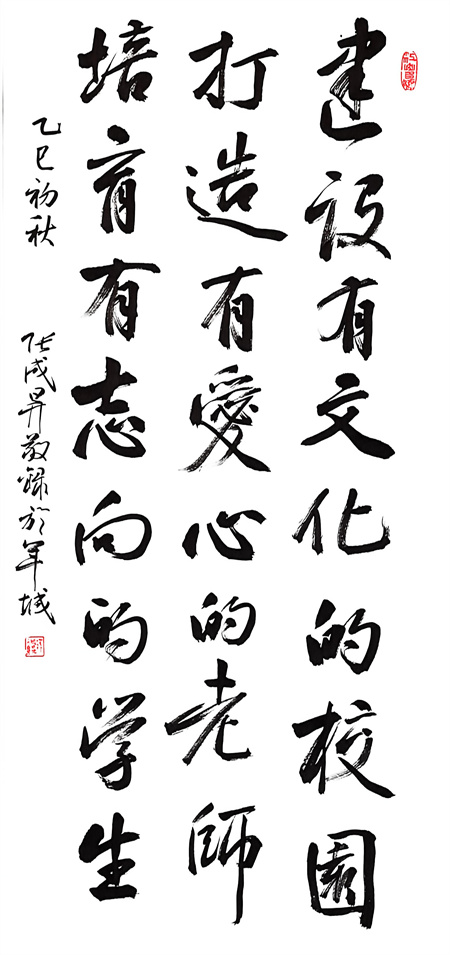 建设有文化的校園
打造有愛心的老師
培育有志向的学生
乙巳初秋
成昇敬録於羊城